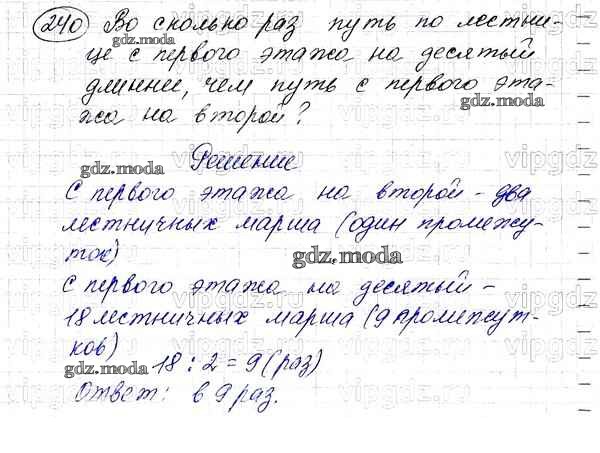 240 Во сколько раз путь по лестни-
це с первого этажа на десятый
длиннее, чем путь с первого эта-
жа на второй?
Решение
С первого этажа на второй - два
лестничных марша (один промежу-
ток)
С первого этажа на десятый -
18 лестничных марша (9 промежут-
ков)
18 : 2 = 9 (раз)
Ответ: в 9 раз.
gdz.moda
gdz.moda
gdz.moda
gdz.moda
gdz.moda
vipgdz.ru